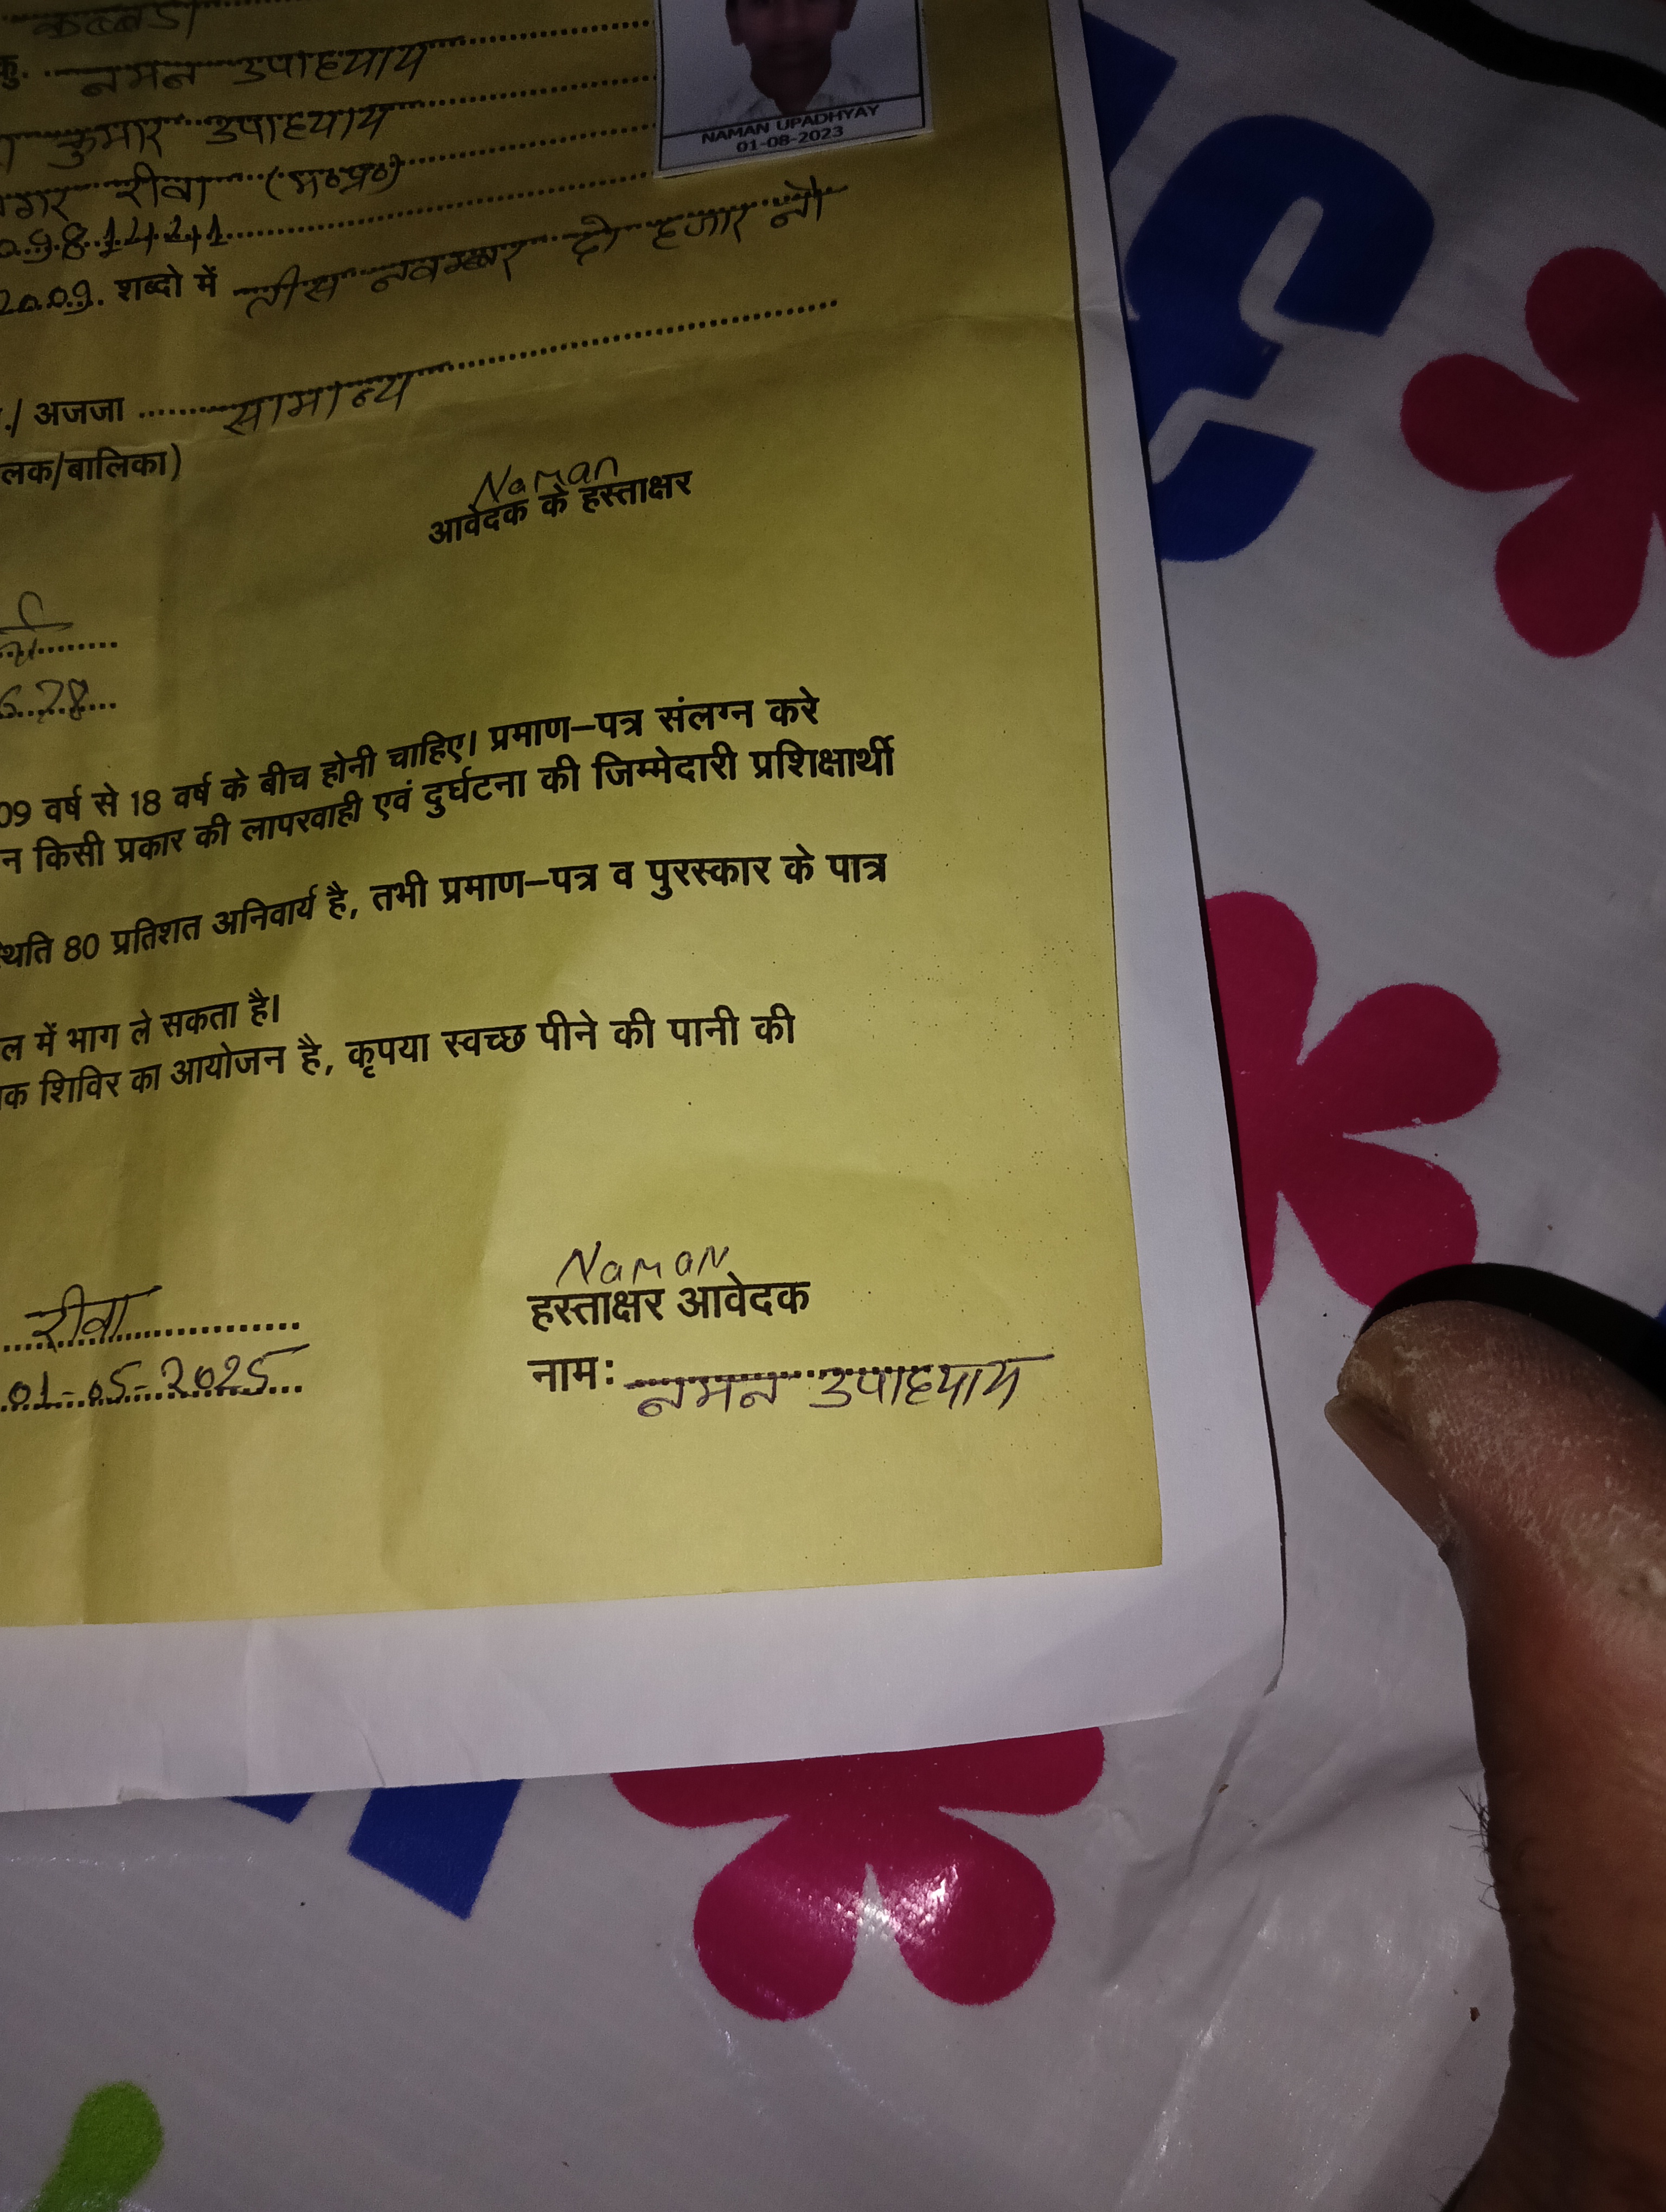 कबड्डी
कु. नमन उपाध्याय
कुमार उपाध्याय
रीवा (म०प्र०)
NAMAN UPADHYAY
01-08-2023
981421
2009. शब्दो में तीस नवम्बर दो हजार नौ
./ अजजा सामान्य
लक/बालिका)
Naman
आवेदक के हस्ताक्षर
09 वर्ष से 18 वर्ष के बीच होनी चाहिए। प्रमाण–पत्र संलग्न करे
न किसी प्रकार की लापरवाही एवं दुर्घटना की जिम्मेदारी प्रशिक्षार्थी
स्थिति 80 प्रतिशत अनिवार्य है, तभी प्रमाण–पत्र व पुरस्कार के पात्र
ल में भाग ले सकता है।
क शिविर का आयोजन है, कृपया स्वच्छ पीने की पानी की
Naman
हस्ताक्षर आवेदक
रीवा
नाम: नमन उपाध्याय
01-05-2025